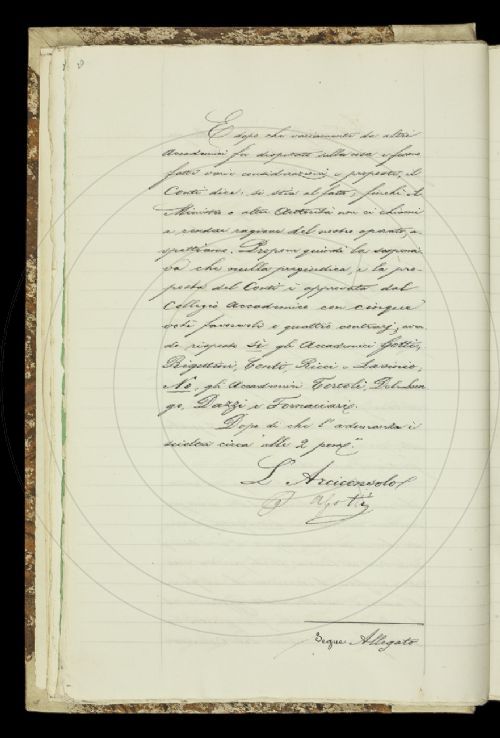 E dopo che variamente da altri
Accademici fu disputato sulla cosa e furon
fatte varie considerazioni e proposte, il
Conti dice: si stia al fatto; finché il
Ministro o altra Autorità non ci chiami
a render ragione del nostro operato, a-
spettiamo. Propone quindi la
che nulla pregiudica, e la pro-
posta del Conti è approvata dal
Collegio Accademico con cinque
voti favorevoli e quattro contrarj; aven-
do risposto sì gli Accademici Gotti,
Rigutini, Conti, Ricci e Lavinio;
Nò, gli Accademici Tortoli, Del Lun
go, Dazzi e Fornaciari.
Dopo di che l'adunanza è
sciolta circa alle 2 pom.e
L'Arciconsolo
A Gotti
Segue Allegato